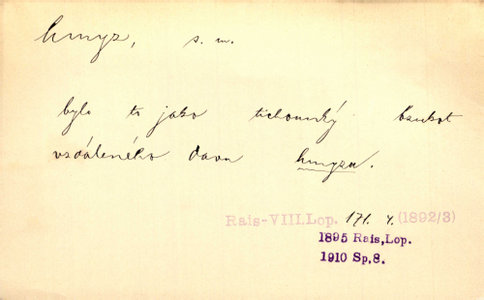 hmyz, s. m.
bylo to jako tichounký bzukot
vzdáleného davu hmyzu.
Rais-VIII.Lop. 171. 4. (1892/3)
1895 Rais,Lop.
1910 Sp,8.